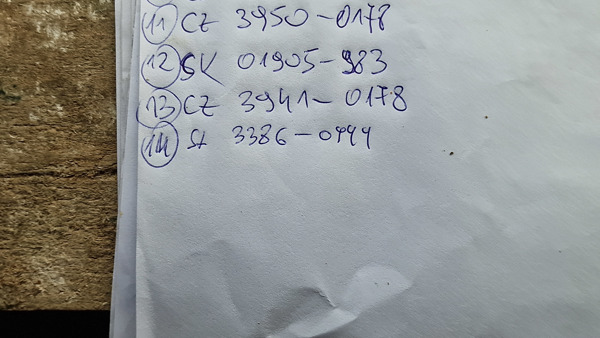 11 CZ 3950-0178
12 SK 01905-983
13 CZ 3941-0178
14 3386-0444